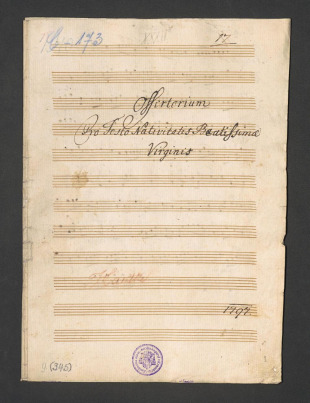 173
17
Offertorium
Pro Festo Nativitatis Beatissimæ
Virginis
1797
(345)